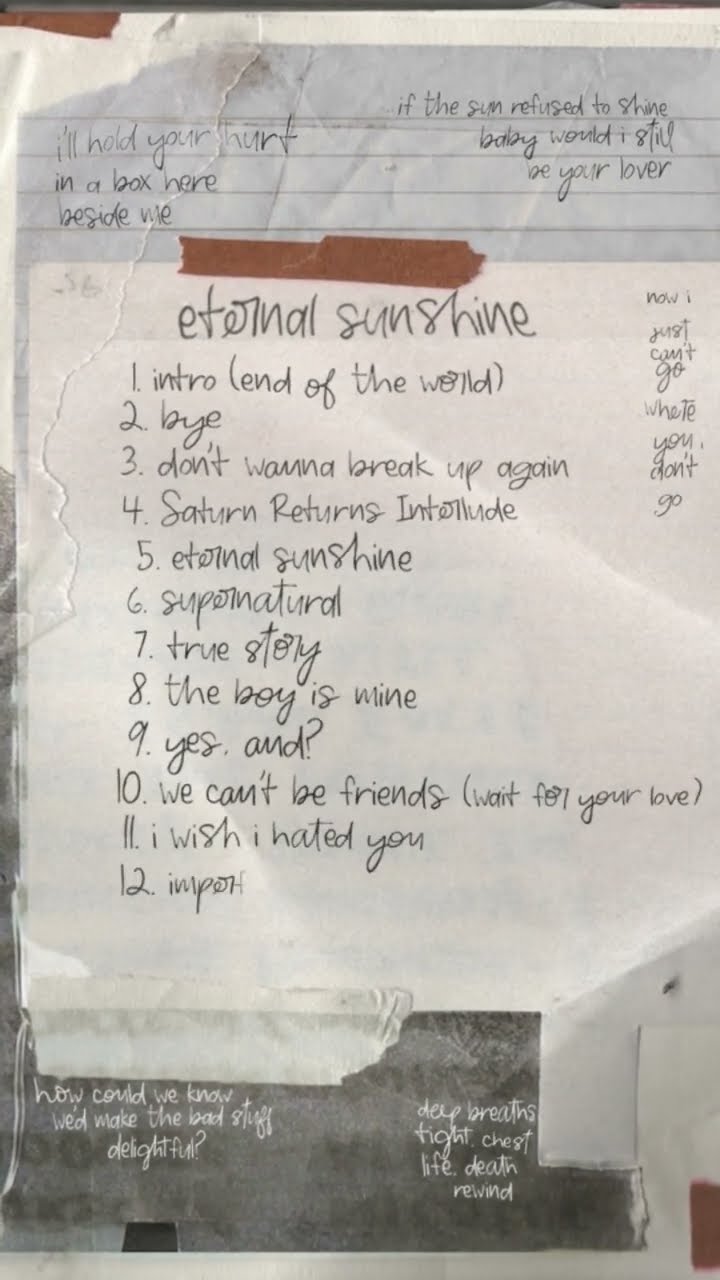 i'll hold your hurt
in a box here
beside me
if the sun refused to shine
baby would i still
be your lover
eternal sunshine
now i
just
can't
go
where
you.
don't
go
1. intro (end of the world)
2. bye
3. don't wanna break up again
4. Saturn Returns Interlude
5. eternal sunshine
6. supernatural
7. true story
8. the boy is mine
9. yes, and?
10. we can't be friends (wait for your love)
11. i wish i hated you
12. imper
how could we know
we'd make the bad stuff
delightful?
deep breaths
tight. chest
life. death
rewind